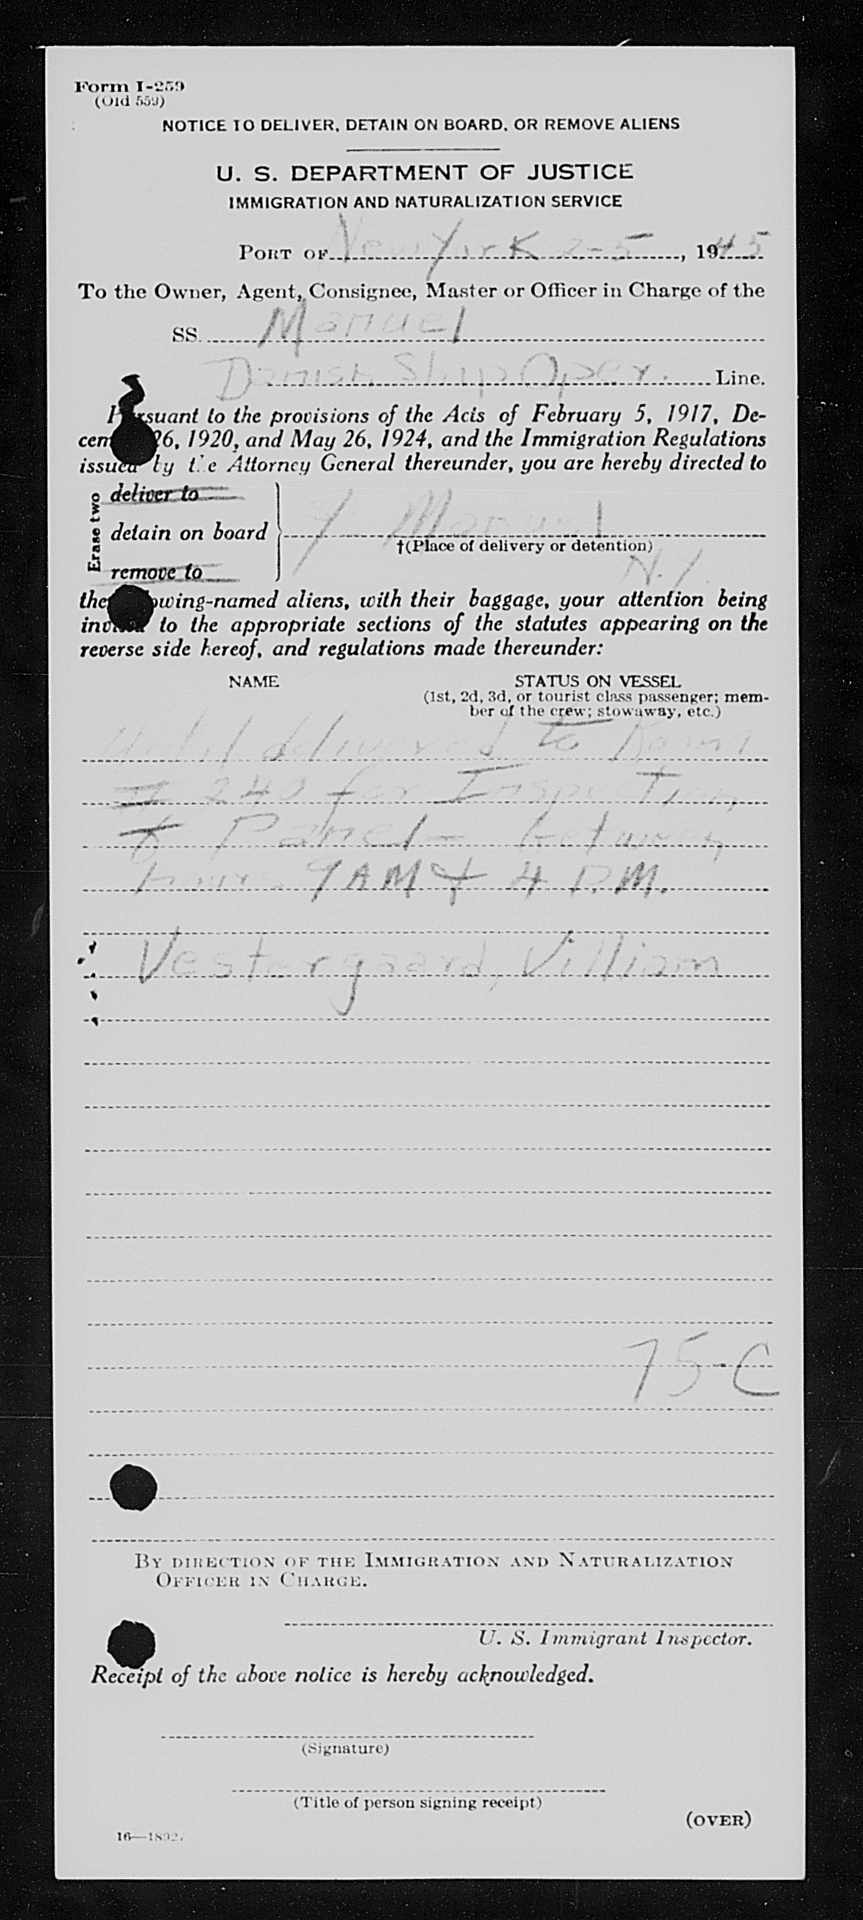 Form I-259
(Old 559)
NOTICE TO DELIVER, DETAIN ON BOARD, OR REMOVE ALIENS
U. S. DEPARTMENT OF JUSTICE
IMMIGRATION AND NATURALIZATION SERVICE
PORT OF New York 2-5, 1945
To the Owner, Agent, Consignee, Master or Officer in Charge of the
SS. Manuel
Danish Ship Oper. Line.
Pursuant to the provisions of the Acts of February 5, 1917, De-
cem 26, 1920, and May 26, 1924, and the Immigration Regulations
issued by the Attorney General thereunder, you are hereby directed to
Erase two
deliver to
detain on board Manuel
†(Place of delivery or detention)
remove to N.Y.
the owing-named aliens, with their baggage, your attention being
invited to the appropriate sections of the statutes appearing on the
reverse side hereof, and regulations made thereunder:
NAME STATUS ON VESSEL
(1st, 2d, 3d, or tourist class passenger; mem-
ber of the crew; stowaway, etc.)
Until delivered to Room
# 240 for Inspection
& Panel - between
hours 9 AM & 4 P.M.
Vestergaard, Villiam
75-C
BY DIRECTION OF THE IMMIGRATION AND NATURALIZATION
OFFICER IN CHARGE.
U. S. Immigrant Inspector.
Receipt of the above notice is hereby acknowledged.
(Signature)
(Title of person signing receipt)
(OVER)